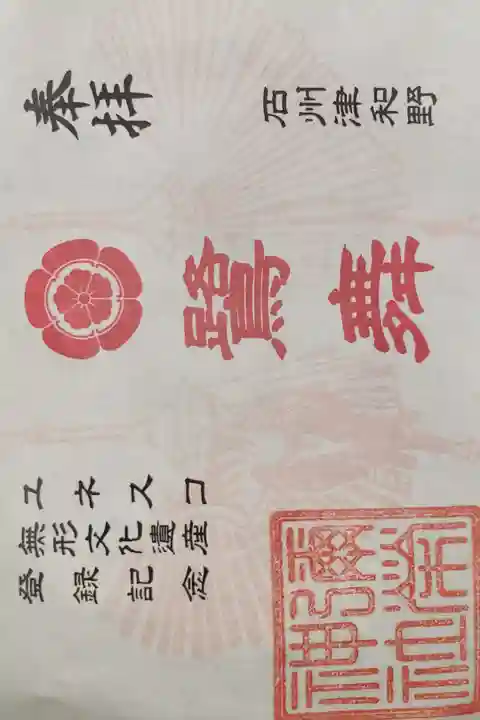 奉拝
石州津和野
鷺舞
ユネスコ
無形文化遺産
登録記念
彌榮
神社